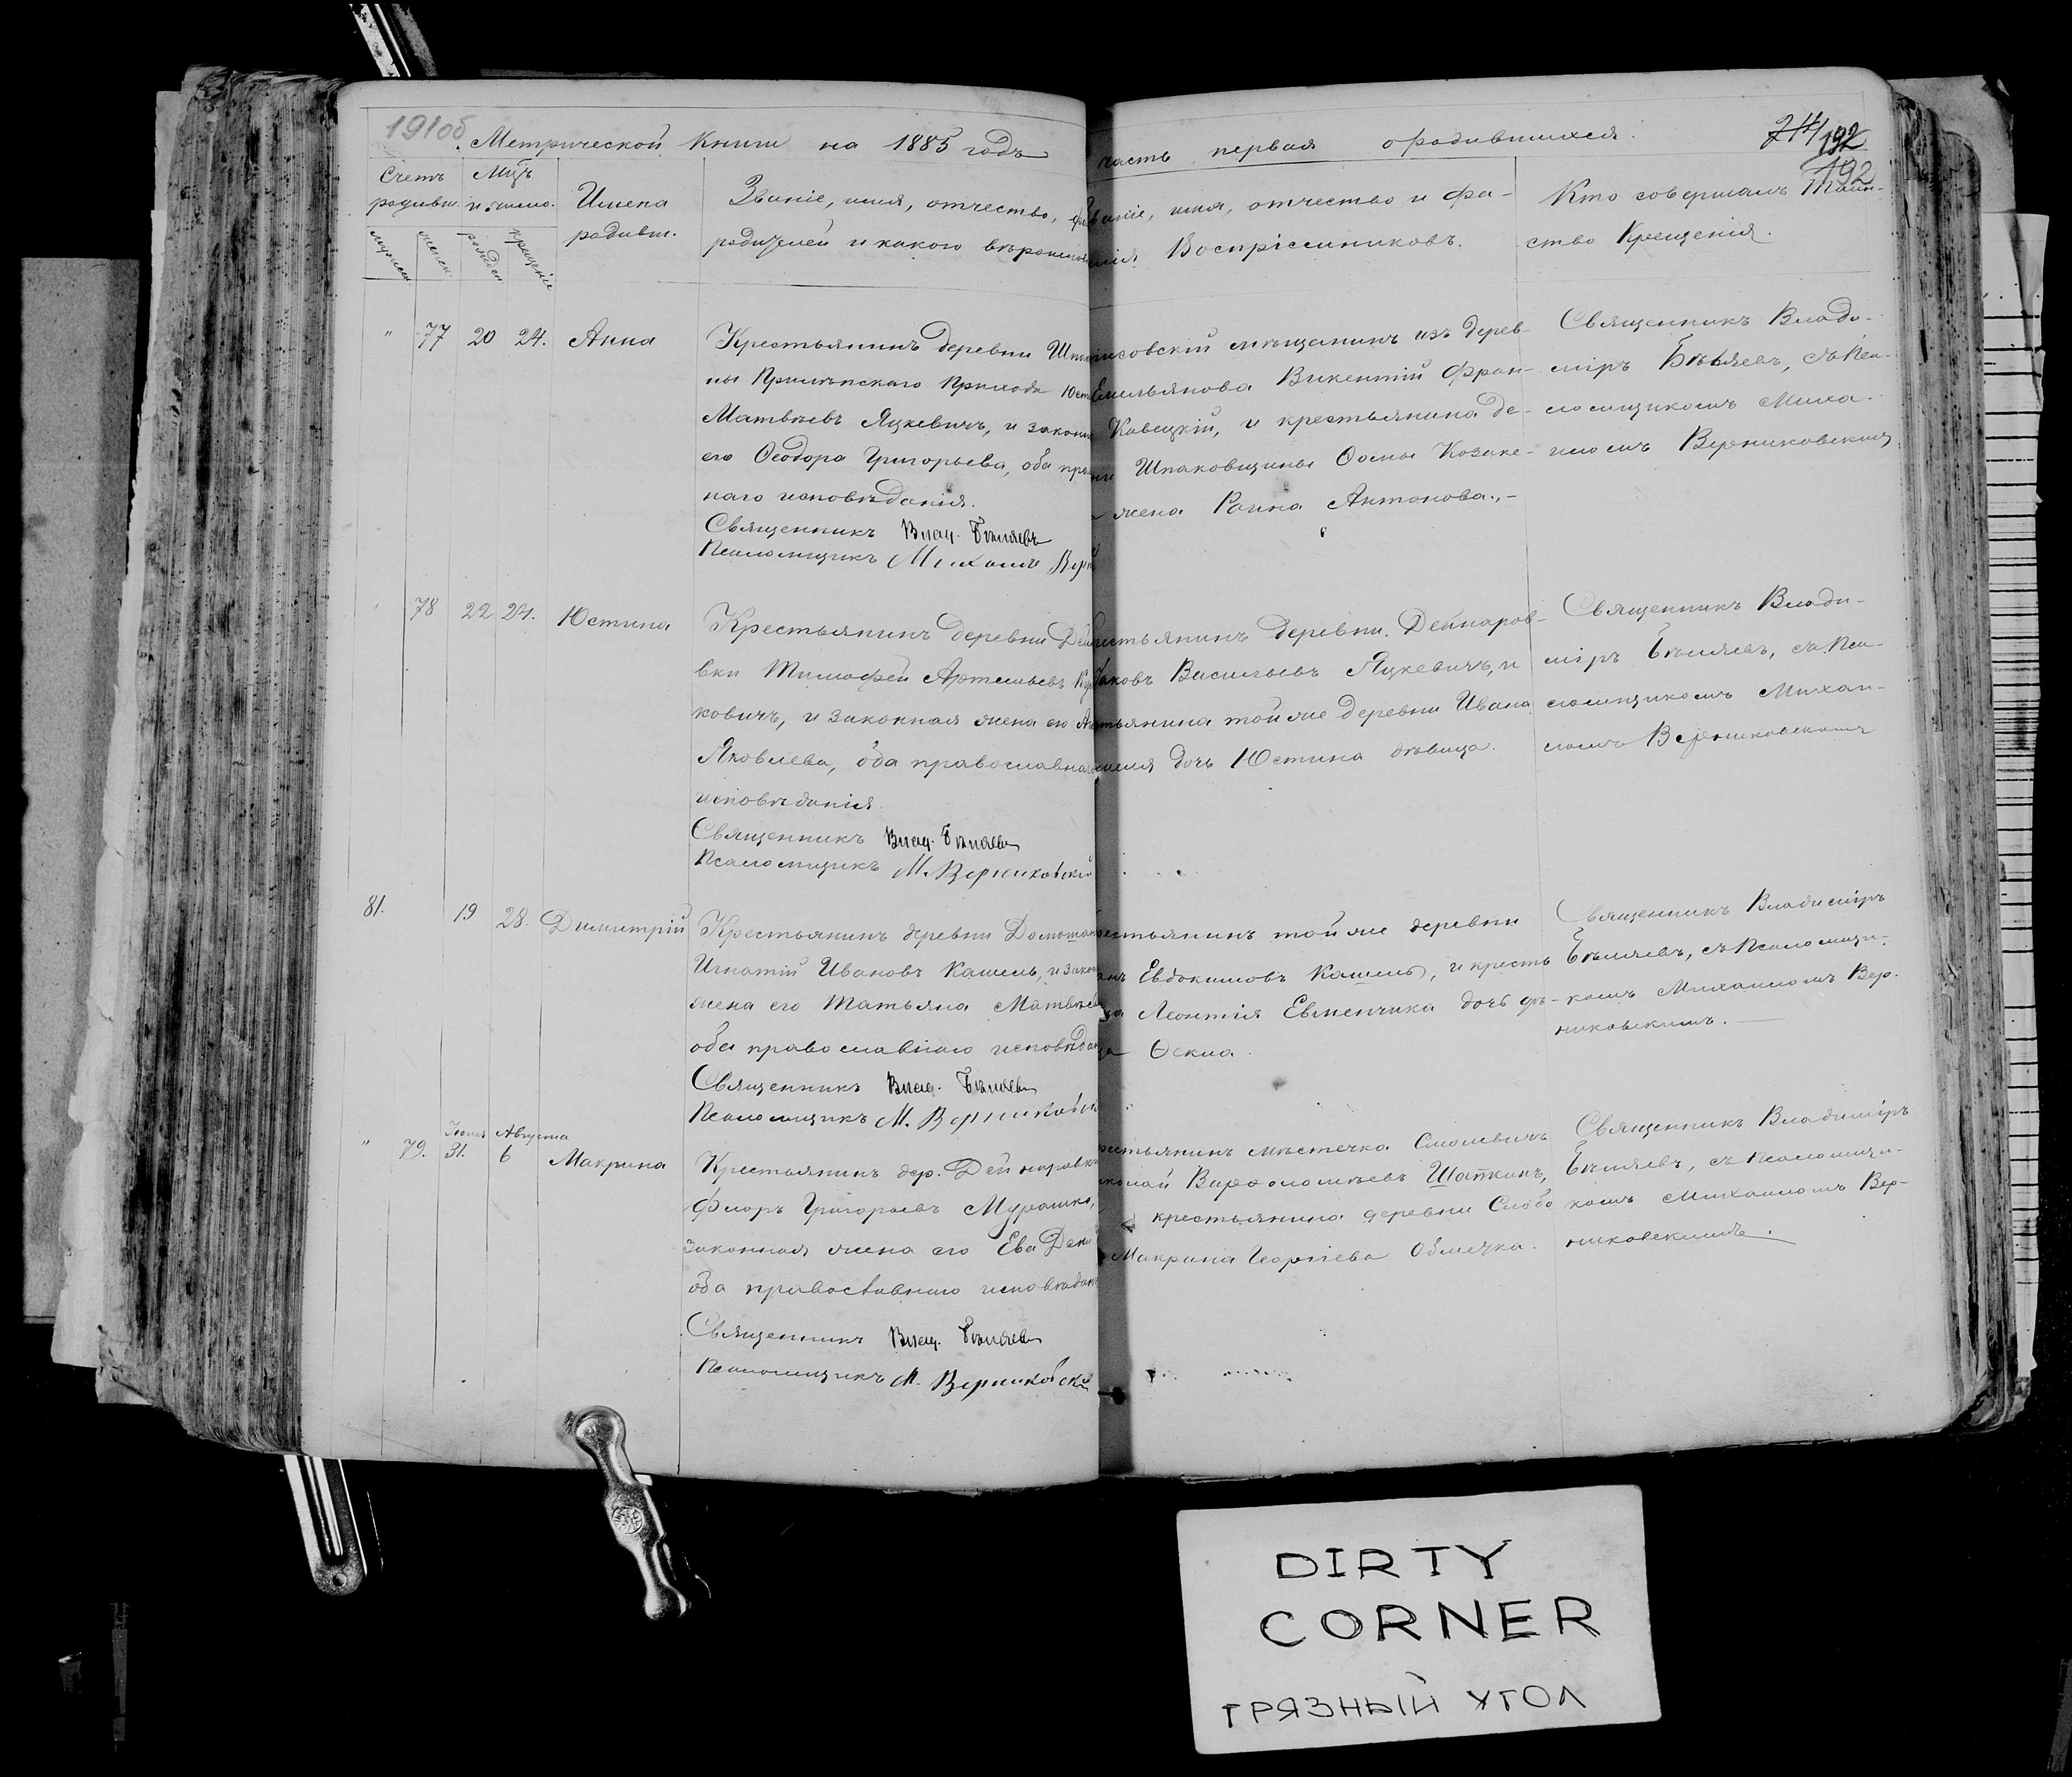 191об
Метрической Книги на 1885 годъ
часть первая о родившихся.
192
192
Счетъ родивш.
Мцъ и число.
мужеск
женск.
рожден
крещенія
Имена родивш.
Званіе, имя, отчество,
родителей и какого вѣроиспов
званіе, имя, отчество и фа-
милія Воспріемниковъ.
Кто совершалъ Таин-
ство Крещенія.
" 77 20 24. Анна
Крестьянинъ деревни
ны Прилѣпскаго Прихода
Матвѣевъ Яцкевичъ, и закон
его Ѳеодора Григорьева, оба пра
наго исповѣданія.
Священникъ Влад. Бѣляевъ
Псаломщикъ Михаилъ Вер
исовскій мѣщанинъ изъ дерев-
Емельянова Викентій Фран-
Ковецкій, и крестьянина де-
ни Шпаковщины Ѳомы Козаке-
а жена Раина Антонова.,-
Священникъ Влади-
міръ Бѣляевъ, съ Пса-
ломщикомъ Миха-
иломъ Верниковским
78 22 24. Юстина
Крестьянинъ деревни Дей
вки Тимофей Артемьевъ
ковичъ, и законная жена его
Яковлева, оба православнаго
исповѣданія.
Священникъ Влад. Бѣляевъ
Псаломщикъ М. Верниковскій
рестьянинъ деревни Дейнаров-
Яковъ Васильевъ Яцкевичъ, и
стьянина той же деревни Ивана
меля дочь Юстина дѣвица.
Священникъ Влади-
міръ Бѣляевъ, съ Пса-
ломщикомъ Михаи-
ломъ Верниковскимъ
81. 19 28. Димитрій
Крестьянинъ деревни
Игнатій Ивановъ Кашель, и закон
жена его Татьяна Матвѣев
оба православнаго исповѣдан
Священникъ Влад. Бѣляевъ
Псаломщикъ М. Верниковск
рестьянинъ той же деревни
анъ Евдокимовъ Кашель, и кресть
на Леонтія Евменчика дочь дѣ-
ца Ѳекла.
Священникъ Владиміръ
Бѣляевъ, съ Псаломщи-
комъ Михаиломъ Вер-
никовскимъ.
" 79. Іюля 31. Августа 6 Макрина
Крестьянинъ дер. Дейнаровк
Флоръ Григорьевъ Мурашко,
законная жена его Ева
оба православнаго исповѣдан
Священникъ Влад. Бѣляевъ
Псаломщикъ М. Верниковскій
рестьянинъ мѣстечка Смолевичъ
иколай Варѳоломѣевъ Шапкинъ,
и крестьянина деревни Слобо
Макрина Георгіева
Священникъ Владиміръ
Бѣляевъ, съ Псаломщи-
комъ Михаиломъ Вер-
никовскимъ.
DIRTY
CORNER
ГРЯЗНЫЙ УГОЛ